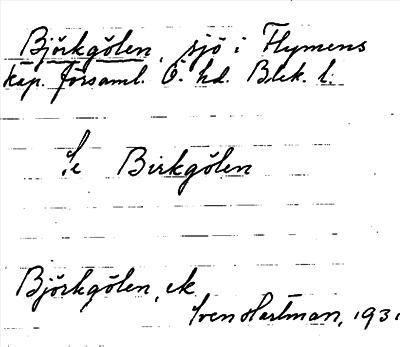 Björkgölen, sjö i Flymens
kap. församl. Ö. hd. Blek. l.
Se Birkgölen
Björkgölen, ek
Sven Hartman, 193